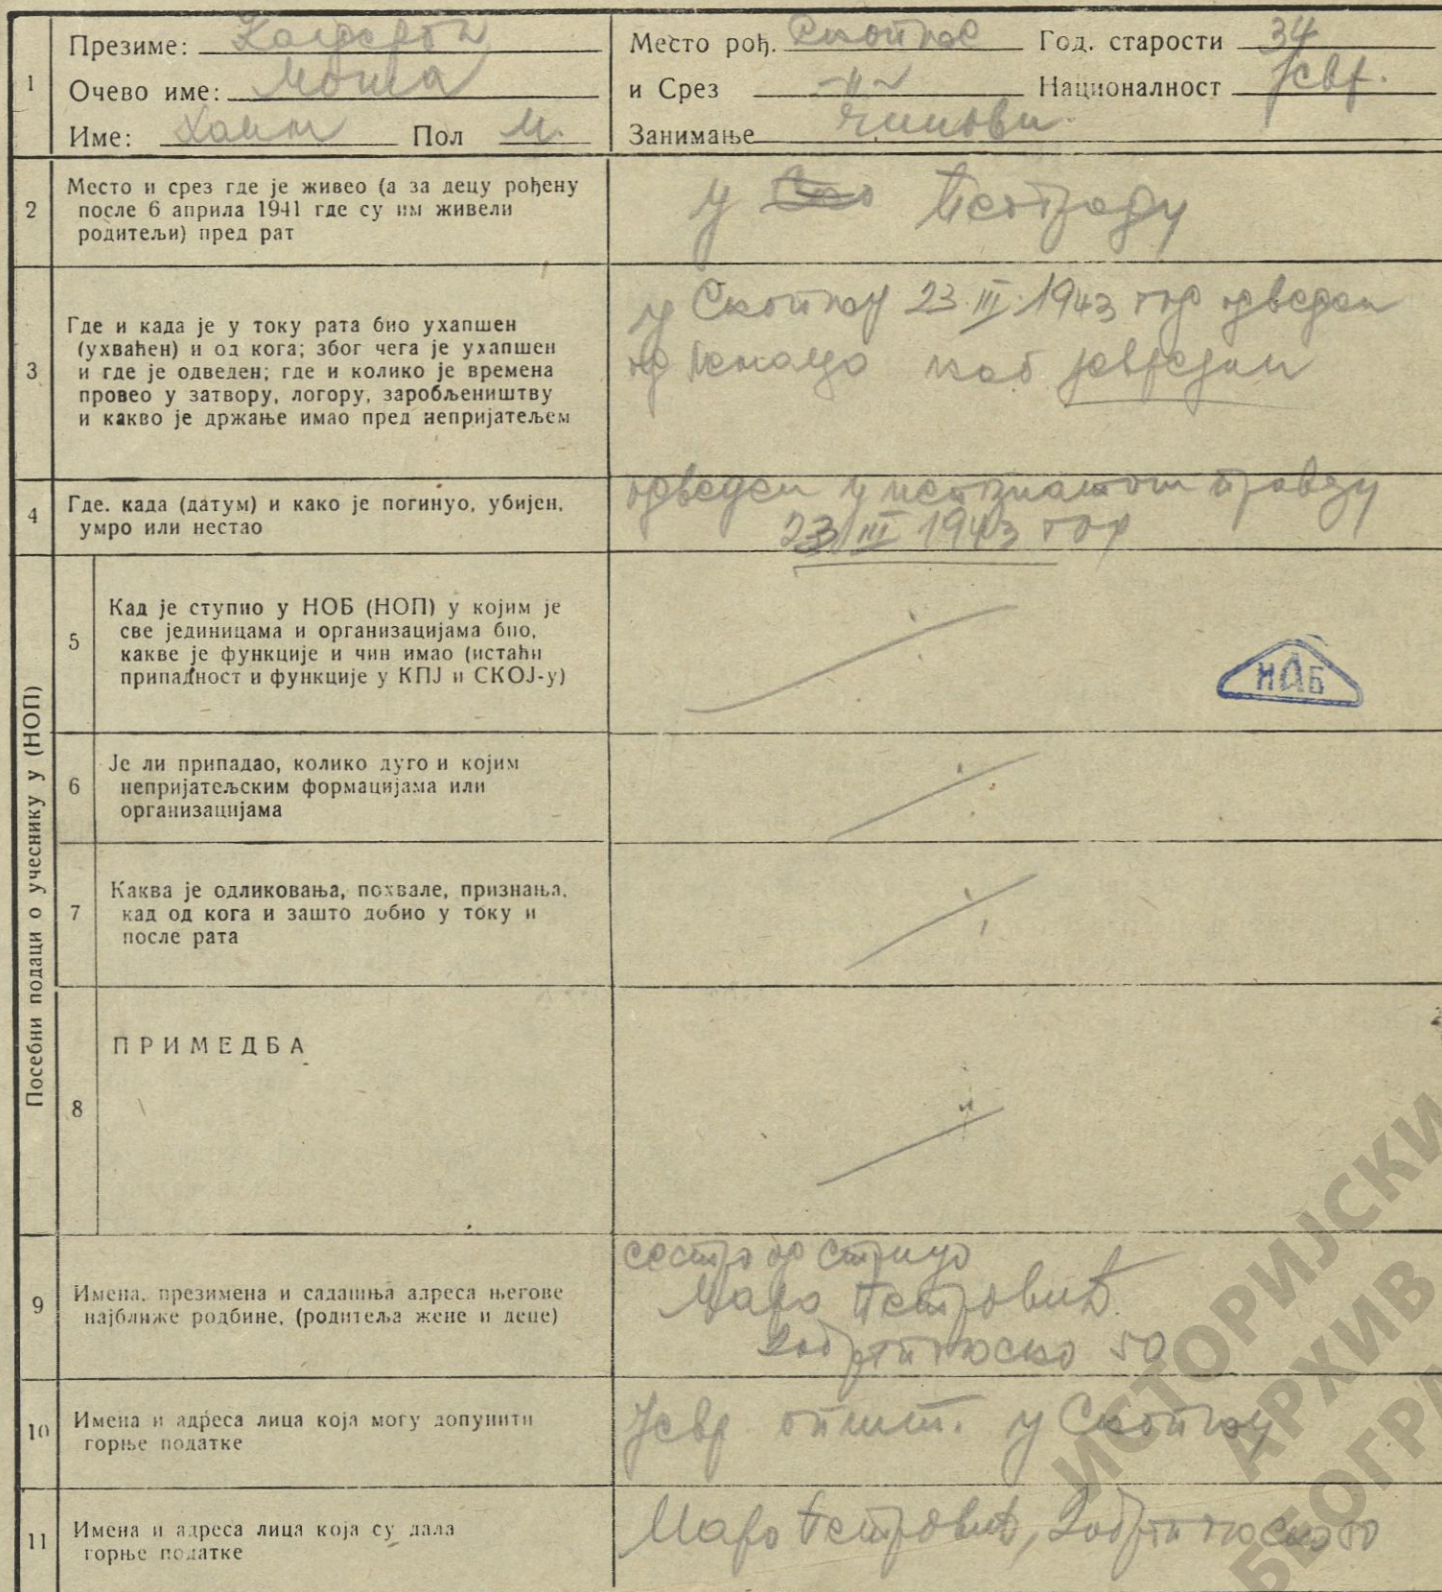 1
Презиме:
Очево име: Моша
Име: Хаим Пол М.
Место рођ. Скопље Год. старости 34
и Срез —〃— Националност Јевр.
Занимање чиновн.
2
Место и срез где је живео (а за децу рођену
после 6 априла 1941 где су им живели
родитељи) пред рат
у Београду
3
Где и када је у току рата био ухапшен
(ухваћен) и од кога; због чега је ухапшен
и где је одведен; где и колико је времена
провео у затвору, логору, заробљеништву
и какво је држање имао пред непријатељем
у Скопљу 23 III 1943 год одведен
од Немаца као јеврејин
4
Где, када (датум) и како је погинуо, убијен,
умро или нестао
одведен у непознатом правцу
23 III 1943 год
Посебни подаци о учеснику у (НОП)
5
Кад је ступио у НОБ (НОП) у којим је
све јединицама и организацијама био,
какве је функције и чин имао (истаћи
припадност и функције у КПЈ и СКОЈ-у)
ИАБ
6
Је ли припадао, колико дуго и којим
непријатељским формацијама или
организацијама
7
Каква је одликовања, похвале, признања,
кад од кога и зашто добио у току и
после рата
8
ПРИМЕДБА
9
Имена, презимена и садашња адреса његове
најближе родбине, (родитеља жене и деце)
сестра од стрица
Мара Петровић
Добрачина 50
10
Имена и адреса лица која могу допунити
горње податке
Јевр општ. у Скопљу
11
Имена и адреса лица која су дала
горње податке
Мара Петровић,
ИСТОРИЈСКИ
АРХИВ
БЕОГРА